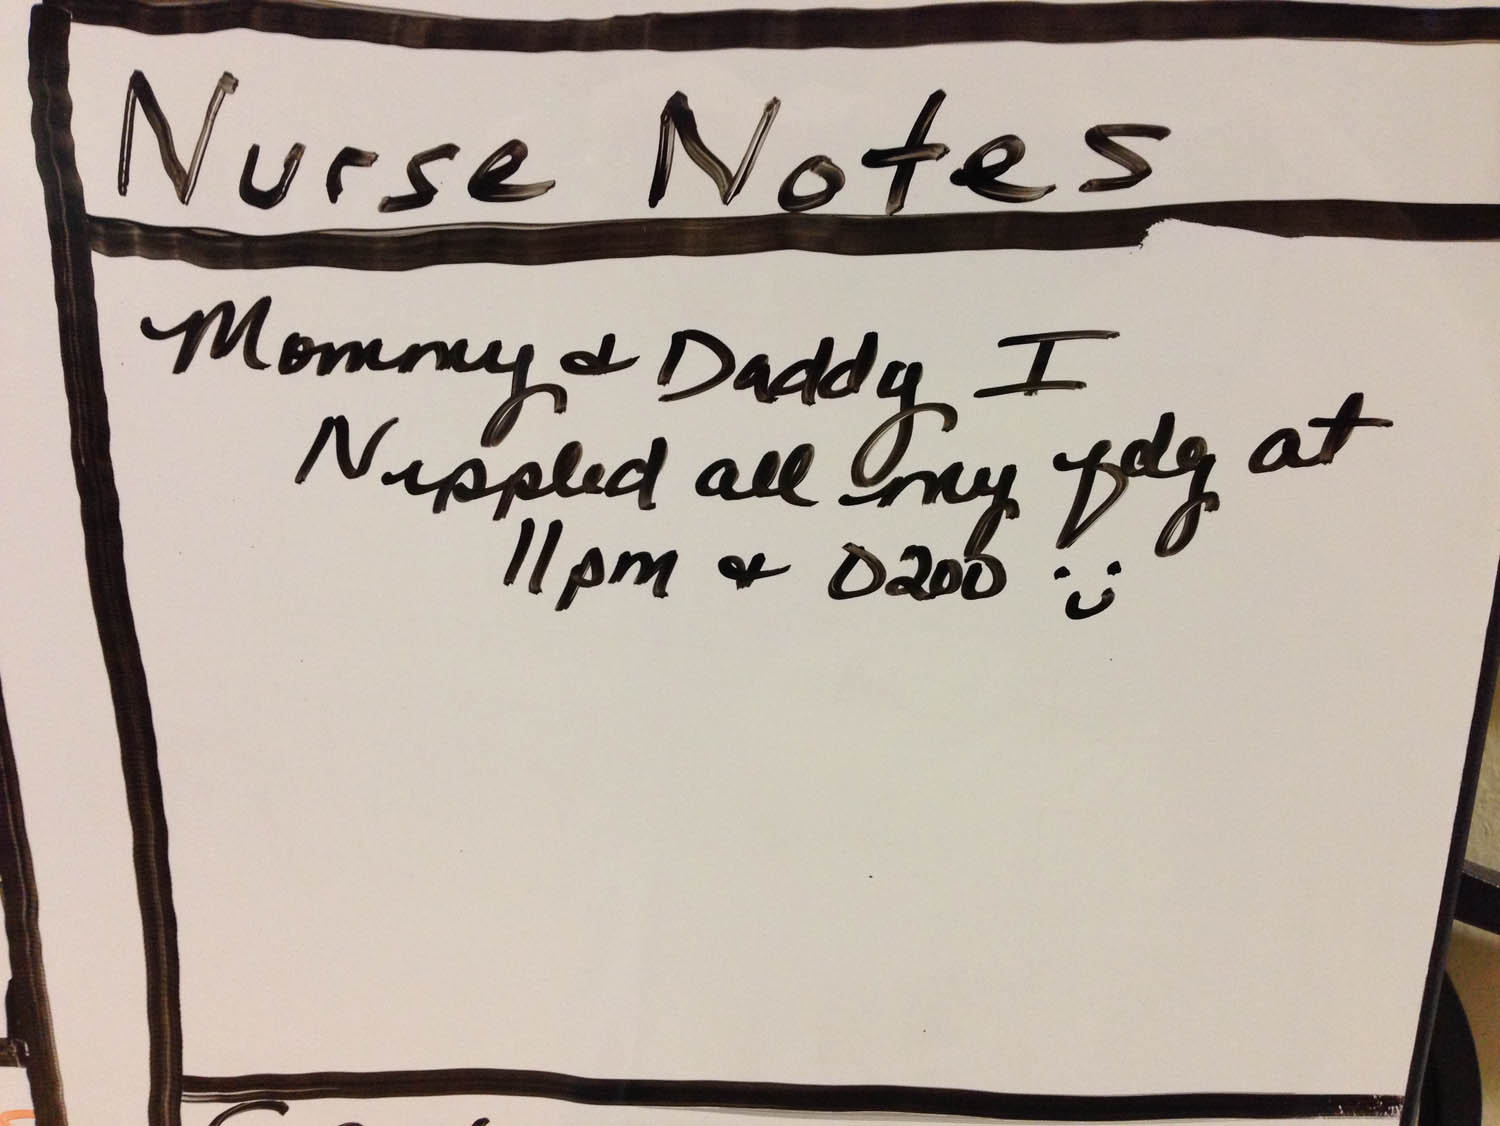 Nurse Notes
Mommy & Daddy I
Nippled all my fdg at
11pm & 0200 :)